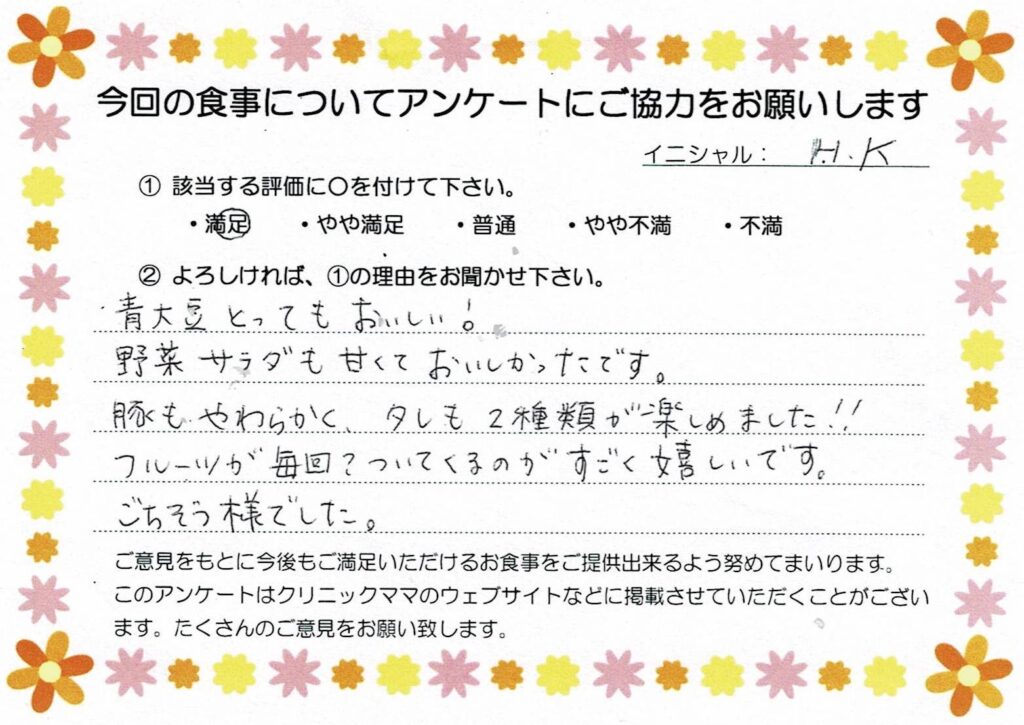 今回の食事についてアンケートにご協力をお願いします
イニシャル： H.K
① 該当する評価に〇を付けて下さい。
・満足 ・やや満足 ・普通 ・やや不満 ・不満
② よろしければ、①の理由をお聞かせ下さい。
青大豆とってもおいしい！
野菜サラダも甘くておいしかったです。
豚もやわらかく、タレも2種類が楽しめました!!
フルーツが毎回？ついてくるのがすごく嬉しいです。
ごちそう様でした。
ご意見をもとに今後もご満足いただけるお食事をご提供出来るよう努めてまいります。
このアンケートはクリニックママのウェブサイトなどに掲載させていただくことがござい
ます。たくさんのご意見をお願い致します。